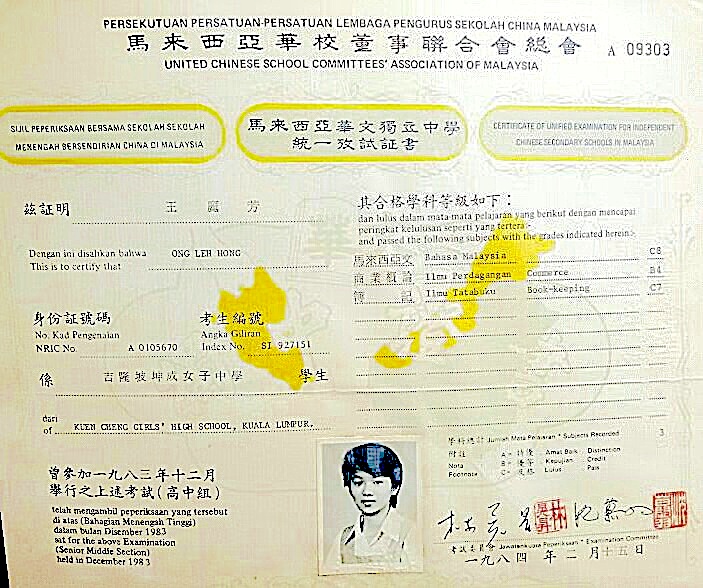 PERSEKUTUAN PERSATUAN-PERSATUAN LEMBAGA PENGURUS SEKOLAH CHINA MALAYSIA
馬來西亞華校董事聯合會總會
A 09303
UNITED CHINESE SCHOOL COMMITTEES' ASSOCIATION OF MALAYSIA
SIJIL PEPERIKSAAN BERSAMA SEKOLAH SEKOLAH
MENENGAH BERSENDIRIAN CHINA DI MALAYSIA
馬來西亞華文獨立中學
統一攷試証書
CERTIFICATE OF UNIFIED EXAMINATION FOR INDEPENDENT
CHINESE SECONDARY SCHOOLS IN MALAYSIA
茲証明
王 芳
Dengan ini disahkan bahwa
This is to certify that
ONG LEH HONG
身份証號碼
No. Kad Pengenalan
NRIC No.
A 0105670
考生編號
Angka Giliran
Index No.
SI 927151
係
吉隆坡坤成女子中學
學生
dari
of
KUEN CHENG GIRLS' HIGH SCHOOL, KUALA LUMPUR.
曾參加一九八三年十二月
舉行之上述考試(高中組)
telah mengambil peperiksaan yang tersebut
di atas (Bahagian Menengah Tinggi)
dalam bulan Disember 1983
sat for the above Examination
(Senior Middle Section)
held in December 1983
其合格學科等級如下:
dan lulus dalam mata-mata pelajaran yang berikut dengan mencapai
peringkat kelulusan seperti yang tertera:-
and passed the following subjects with the grades indicated herein:-
馬來西亞文 Bahasa Malaysia C8
商業概論 Ilmu Perdagangan Commerce B4
簿記 Ilmu Tatabuku Book-keeping C7
學科總計 Jumlah Mata Pelajaran * Subjects Recorded 3
附註 A = 特優 Amat Baik Distinction
Nota B = 優等 Kepujian Credit
Footnote C = 及格 Lulus Pass
考試委員會 Jawatankuasa Peperiksaan * Examination Committee
一九八四年二月十五日